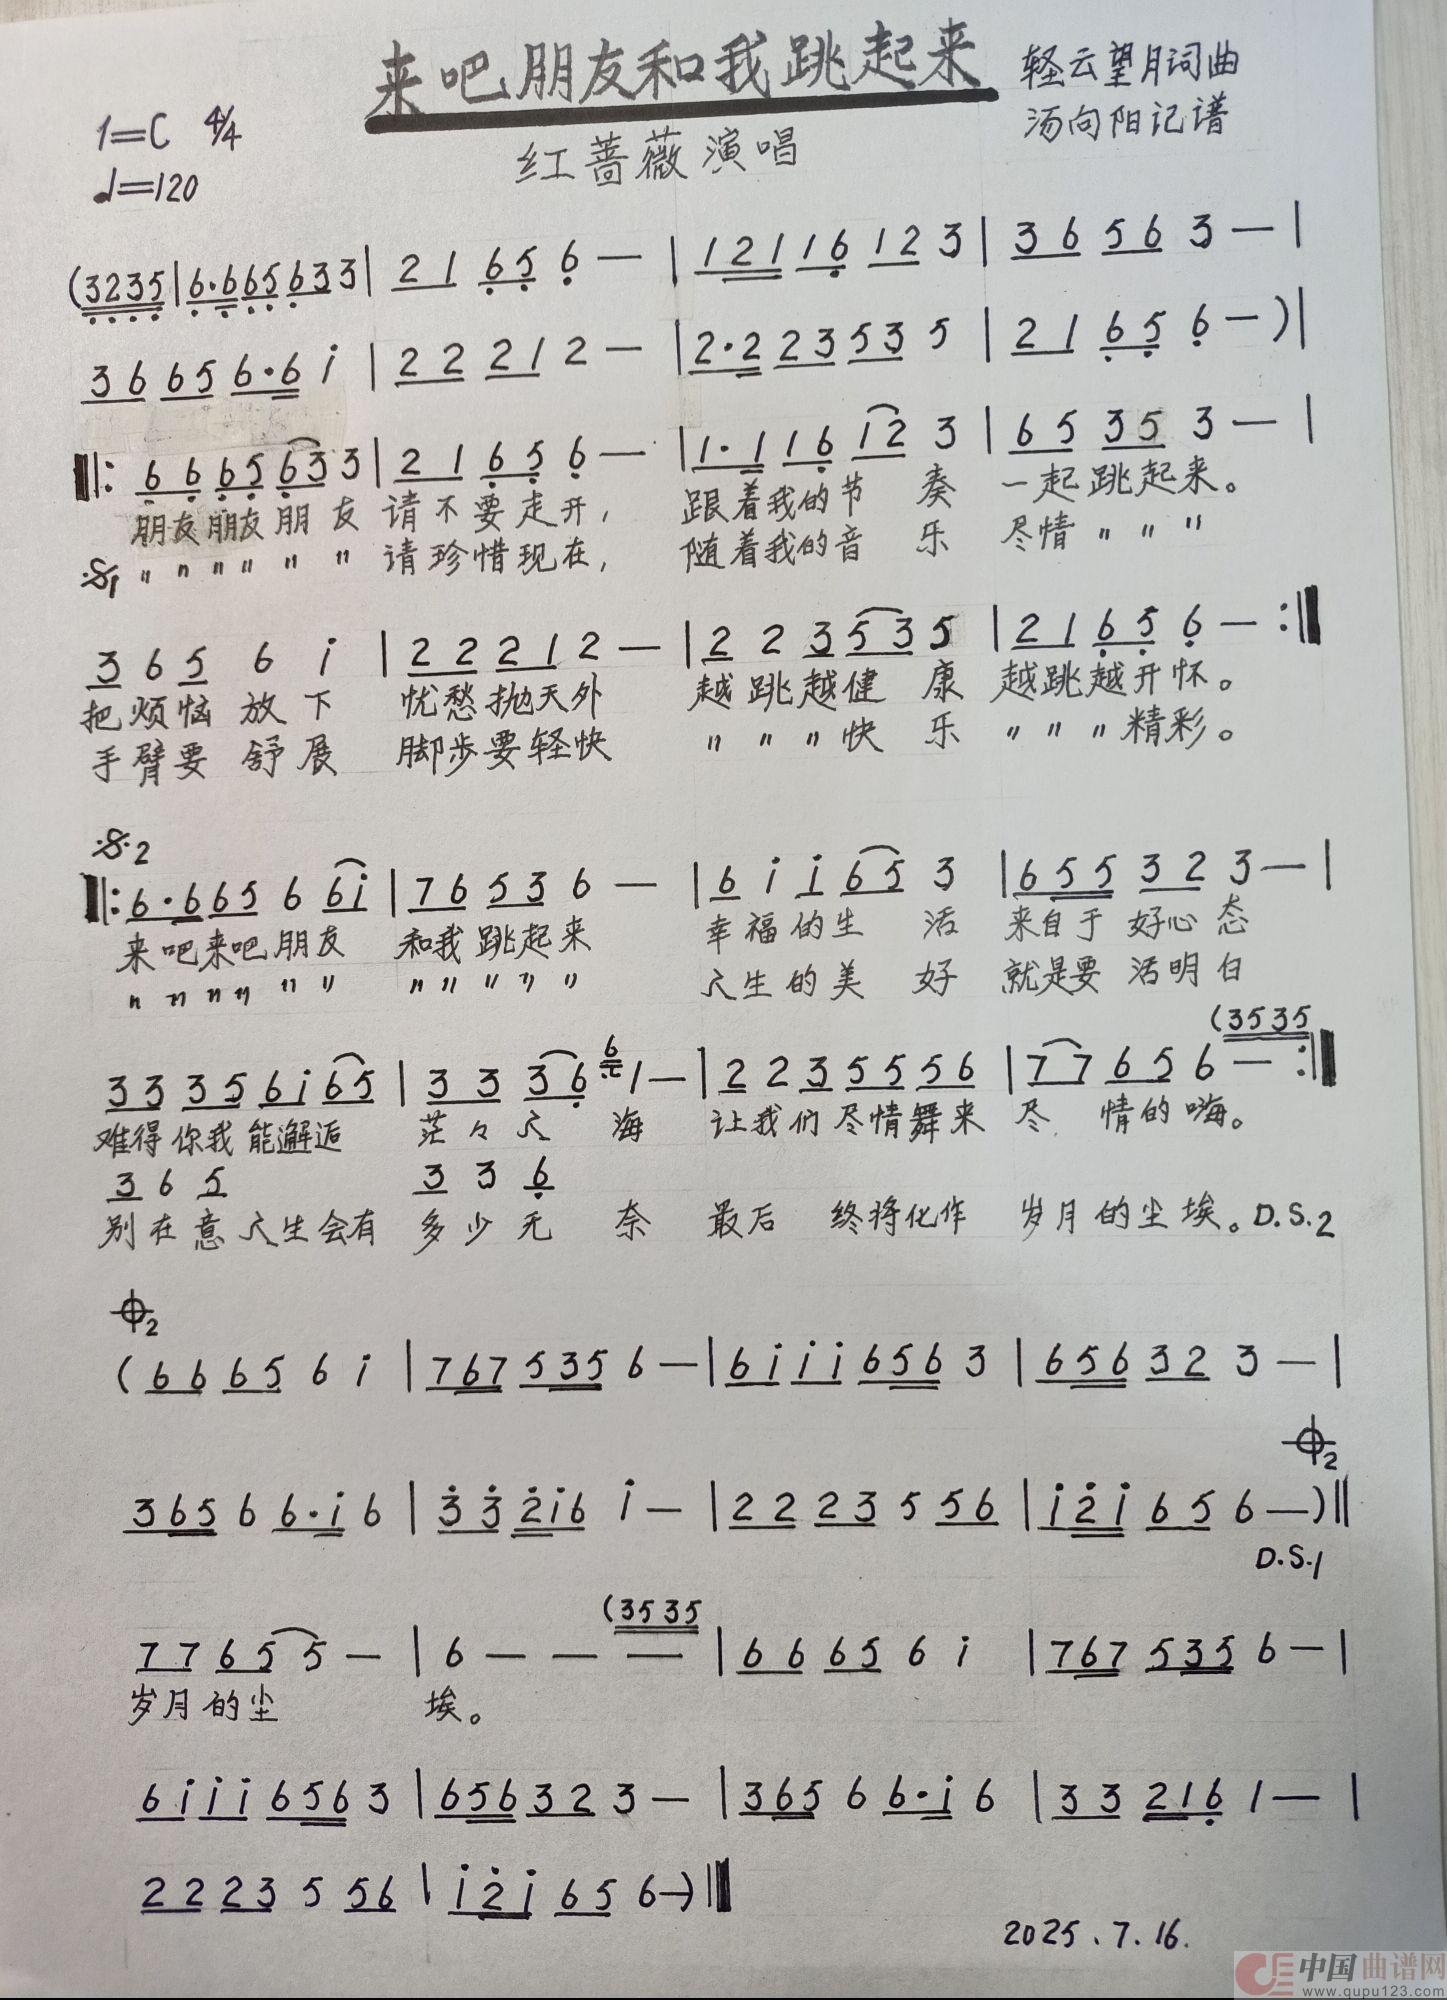 来吧朋友和我跳起来
轻云望月词曲
1=C 4/4
汤向阳记谱
♩=120
红蔷薇演唱
(3235|6·665633|21656—|12116123|36563—|
366566·6i|22212—|2·223535|21656—)|
‖:6665633|21656—|1·116123|65353—|
朋友朋友朋友 请不要走开, 跟着我的节奏 一起跳起来。
:S:1 〃〃〃〃〃〃 请珍惜现在, 随着我的音乐 尽情〃〃〃
3656i|22212—|223535|21656—:‖
把烦恼放下 忧愁抛天外 越跳越健康 越跳越开怀。
手臂要舒展 脚步要轻快 〃〃〃快乐 〃〃〃精彩。
:S:2
‖:6·66566i|76536—|6ii653|655323—|
来吧来吧朋友 和我跳起来 幸福的生活 来自于好心态
〃〃〃〃〃〃 〃〃〃〃〃 人生的美好 就是要活明白
(3535
33356i65|333661—|22355556|776566—:‖
难得你我能邂逅 茫々人海 让我们尽情舞来 尽情的嗨。
365 336
别在意人生会有 多少无奈 最后终将化作 岁月的尘埃。D.S.2
𝄌2
(66656i|7675356—|6iii6563|656323—|
𝄌2
36566·i6|332i6i—|22235556|i2i656—)‖
D.S.1
(3535
77655—|6———|66656i|7675356—|
岁月的尘 埃。
6iii6563|656323—|36566·i6|332161—|
22235556|i2i656—)‖
2025.7.16.
中国曲谱网
www.qupu123.com